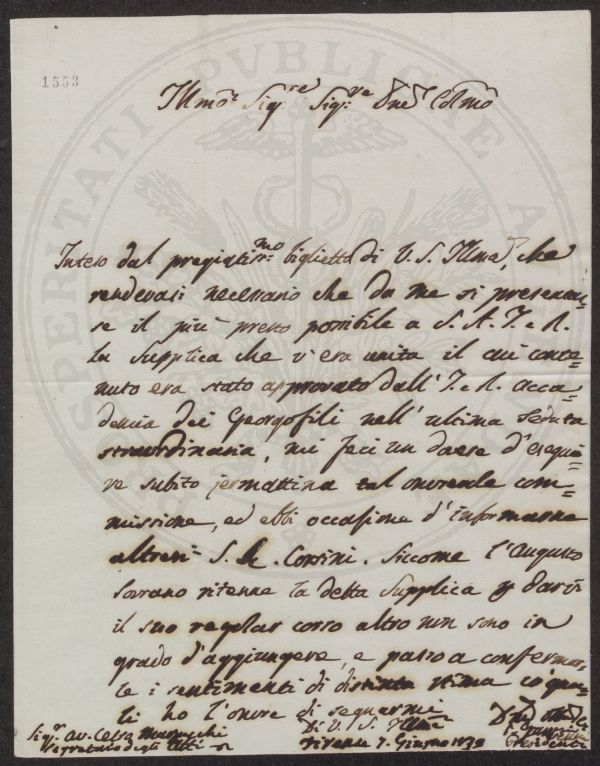 1553
Illmo. Sigre Sigre Pne Colmo
Inteso dal pregiatismo biglietto di V. S. Illma, che
rendevasi necessario che da me si presentas=
se il più presto possibile a S. A. I. e R.
la Supplica che v'era unita il cui conte=
nuto era stato approvato dall' I. e R. Acca=
demia dei Georgofili nell'ultima Seduta
straordinaria, mi feci un dovere d'esegui=
re subito jermattina tal onorevole com=
missione, ed ebbi occasione d'informarne
altresì S. E. Corsini. Siccome l'Augusto
Sovrano ritenne la detta Supplica p darvi
il suo regolar corso altro non sono in
grado d'aggiungere, e passo a confermar=
le i sentimenti di distinta stima co' qua=
li ho l'onore di segnarmi
Sigr Av. Celso Marzucchi
Segretario degli Atti
Di V. S. Illma
Firenze 7. Giugno 1839
Presidente